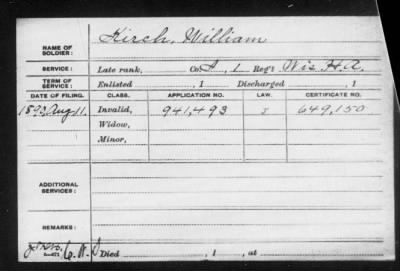 NAME OF SOLDIER: Kirch, William
SERVICE: Late rank, Co. I, 1 Reg't Wis. H.A.
TERM OF SERVICE: Enlisted , 1 Discharged , 1
DATE OF FILING. CLASS. APPLICATION NO. LAW. CERTIFICATE NO.
Aug 11. Invalid, 941,493 649,150
Widow,
Minor,
ADDITIONAL SERVICES:
REMARKS:
Died , 1 , at